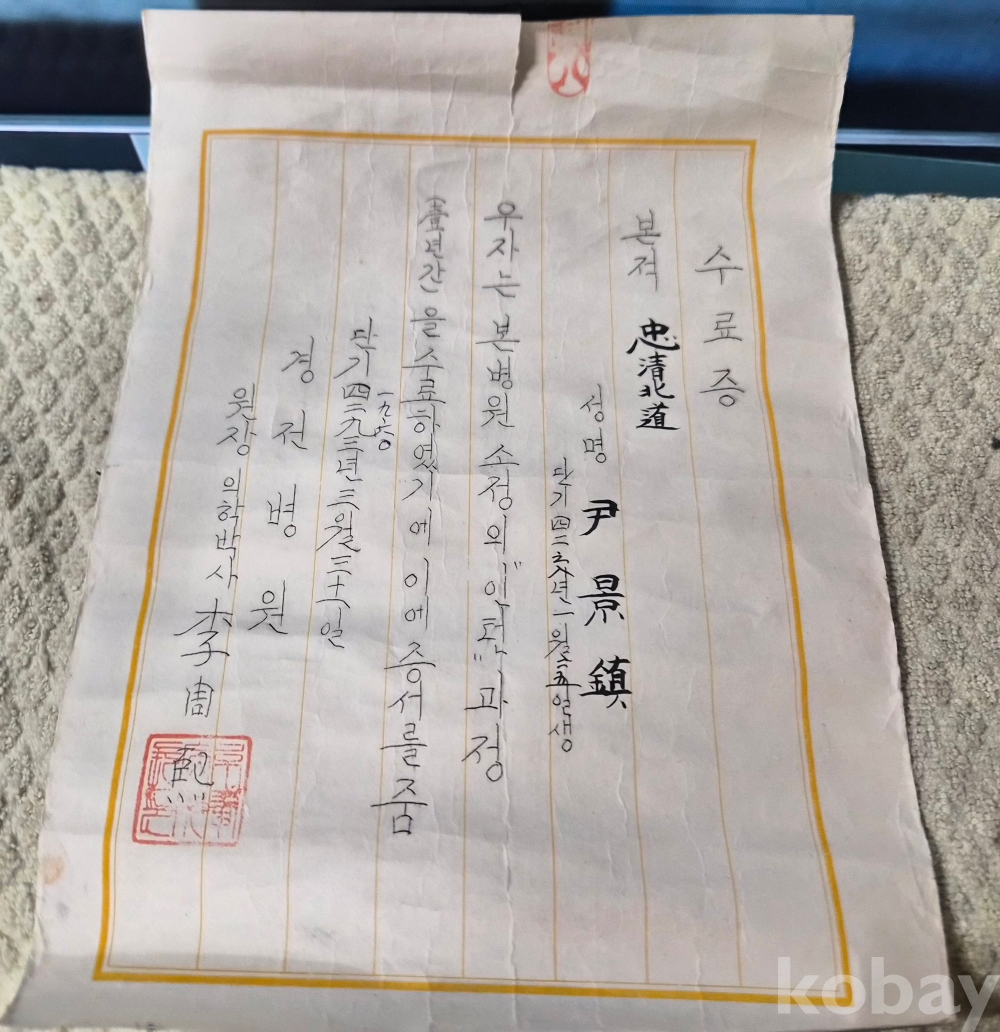 수료증
본적 忠清北道
성명 尹景鎮
단기四二六八年一月二五일생
우자는 본병원 소정의 "인턴" 과정
(壹년간을 수료하였기에 이에 증서를 줌
一九六〇
단기四二九三年三월三十一일
경전병원
원장 의학박사 李周
kobay